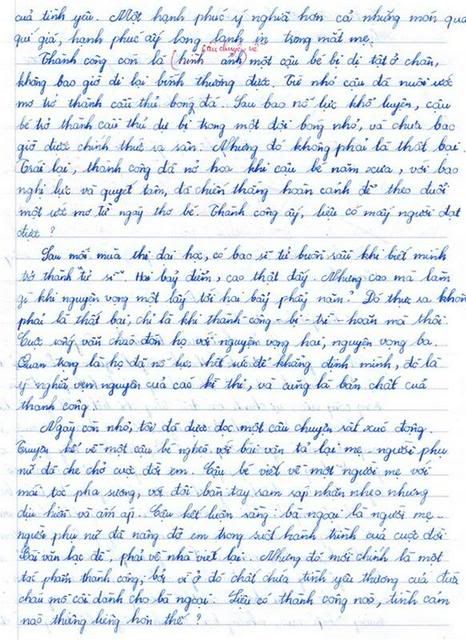 của tình yêu. Một hạnh phúc ý nghĩa hơn cả những món quà
quí giá, hạnh phúc ấy long lanh in trong mắt mẹ.
câu chuyện về
Thành công còn là (hình ảnh) một cậu bé bị dị tật ở chân,
không bao giờ đi lại bình thường được. Từ nhỏ cậu đã nuôi ước
mơ trở thành cầu thủ bóng đá. Sau bao nỗ lực khổ luyện, cậu
bé trở thành cầu thủ dự bị trong một đội bóng nhỏ, và chưa bao
giờ được chính thức ra sân. Nhưng đó không phải là thất bại.
Trái lại, thành công đã nở hoa khi cậu bé năm xưa, với bao
nghị lực và quyết tâm, đã chiến thắng hoàn cảnh để theo đuổi
một ước mơ từ ngày thơ bé. Thành công ấy, liệu có mấy người đạt
được?
Sau mỗi mùa thi đại học, có bao sĩ tử buồn sầu khi biết mình
trở thành "tử sĩ". Hai bảy điểm, cao thật đấy. Nhưng cao mà làm
gì khi nguyện vọng một lấy tới hai bảy phẩy năm? Đó thực ra không
phải là thất bại, chỉ là khi thành-công-bị-trì-hoãn mà thôi.
Cuộc sống vẫn chào đón họ với nguyện vọng hai, nguyện vọng ba.
Quan trọng là họ đã nỗ lực hết sức để khẳng định mình, đó là
ý nghĩa vẹn nguyên của các kì thi, và cũng là bản chất của
thành công.
Ngày còn nhỏ, tôi đã được đọc một câu chuyện rất xúc động.
Truyện kể về một cậu bé nghèo với bài văn tả lại mẹ - người phụ
nữ đã che chở cuộc đời em. Cậu bé viết về một người mẹ với
mái tóc pha sương, với đôi bàn tay ram ráp nhăn nheo nhưng
dịu hiền và ấm áp. Cậu kết luận rằng: bà ngoại là người mẹ -
người phụ nữ đã nâng đỡ em trong suốt hành trình của cuộc đời
Bài văn lạc đề, phải về nhà viết lại. Nhưng đó mới chính là một
tác phẩm thành công, bởi vì ở đó chất chứa tình yêu thương của đứa
cháu mồ côi dành cho bà ngoại. Liệu có thành công nào, tình cảm
nào thiêng liêng hơn thế?